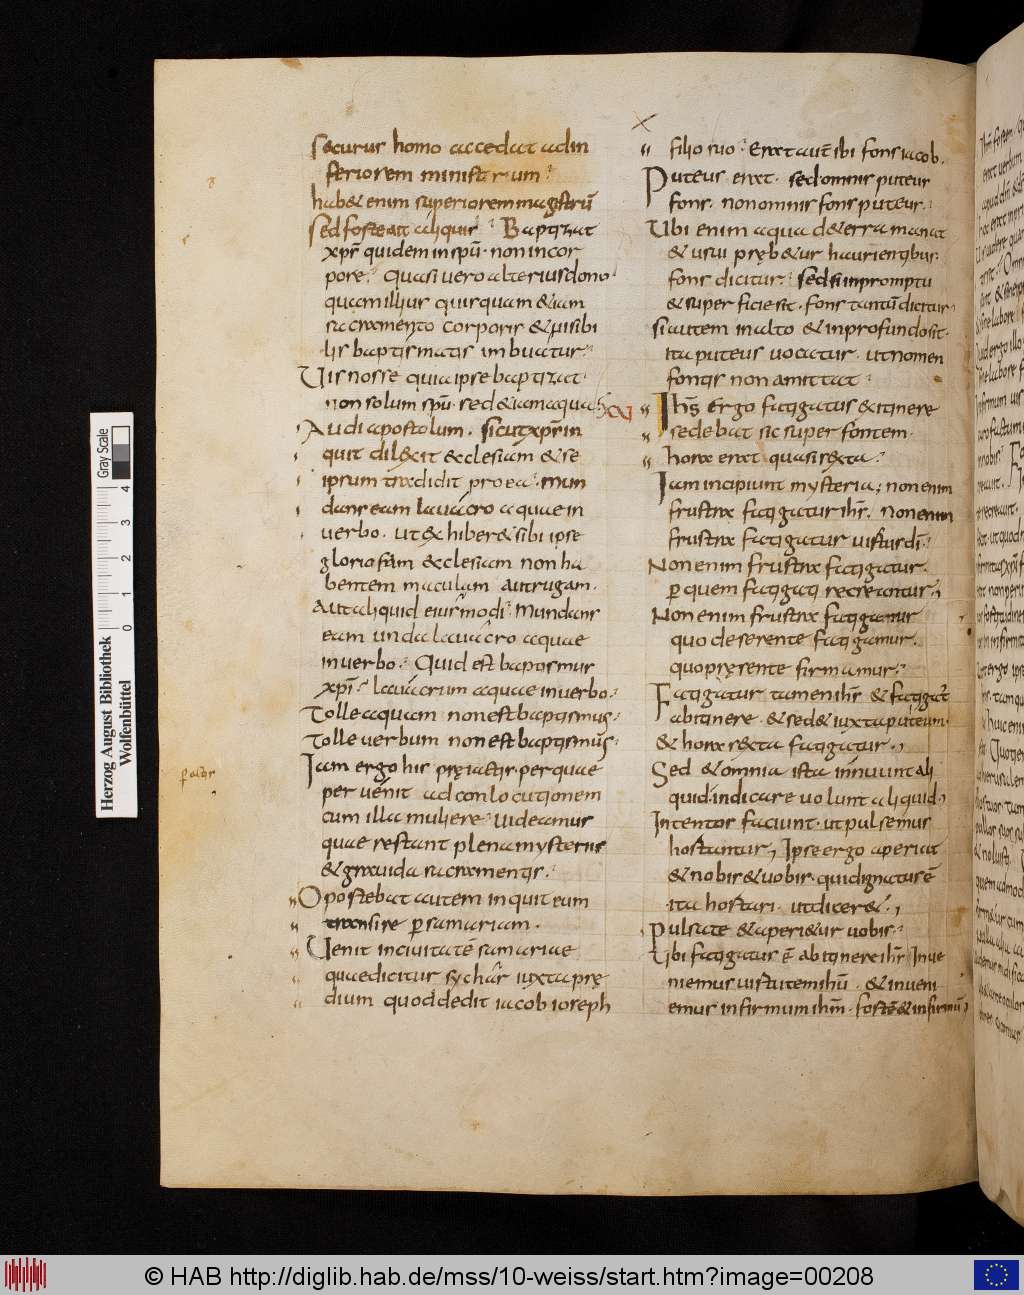 securus homo accedat ad in
feriorem ministerium.
hab& enim superiorem magistrū
sed forte ait aliquis. Baptizat
xpr̄ quidem in spū. non in cor
pore. Quasi vero alterius dono
quam illius quisquam &iam
sacramento corporis & visibi
lis baptismatis imbuatur.
Vis nosse quia ipse baptizat.
non solum spū. sed &iam aqua
Audi apostolum. sicut xpr̄ in
quit dilexit ecclesiam & se
ipsum tradidit pro ea. mun
dans eam lavacro aquae in
verbo. ut exhiber& sibi ipse
gloriosam ecclesiam non ha
bentem maculam aut rugam.
Aut aliquid eiusmodi. Mundans
eam unda lavacro aquae
in verbo. Quid est baptismus
xpī. lavacrum aquae in verbo.
Tolle aquam non est baptismus.
Tolle verbum non est baptismus.
Iam ergo his pręiactis. per quae
pervenit ad conlocutionem
cum illa muliere. videamus
quae restant plena mysteriis
& gravida sacramentis.
Oportebat autem inquit eum
transire ꝑ samariam.
Venit in civitatē samariae
quae dicitur sychar iuxta prę
dium quod dedit iacob ioseph
filio suo. Erat aut̄ ibi fons iacob.
Puteus erat. sed omnis puteus
fons. non omnis fons puteus.
Ubi enim aqua de terra manat
& usui pręb&ur haurientibus.
fons dicitur. sed si in promptu
& superficie sit. fons tantū dicitur.
si autem in alto & in profundo sit.
ita puteus vocatur. ut nomen
fontis non amittat.
XV
Ihs̄ Ergo fatigatus & itinere
sedebat sic super fontem.
hora erat quasi sexta.
Iam incipiunt mysteria; non enim
frustra fatigatur ihs̄. Non enim
frustra fatigatur virtus dī.
Non enim frustra fatigatur.
ꝑ quem fatigati recreantur.
Non enim frustra fatigatur
quo deserente fatigamur.
quo pręsente firmamur.
Fatigatur tamen ihs̄ & fatigat̄
ab itinere. & sed& iuxta puteum.
& hora sexta fatigatur.
Sed & omnia ista innuunt ali
quid. indicare volunt aliquid.
Intentos faciunt. ut pulsemus
hortantur, Ipse ergo aperiat
& nobis & vobis. qui dignatus ē
ita hortari. ut dicer&.
Pulsate & aperi&ur vobis.
Ubi fatigatur ē ab itinere ihs̄ Inve
niemus virtutem ihū. & inveni
emus infirmum ihm̄. fortē & infirmū
Herzog August Bibliothek
Wolfenbüttel
Gray Scale
0 1 2 3 4
© HAB http://diglib.hab.de/mss/10-weiss/start.htm?image=00208